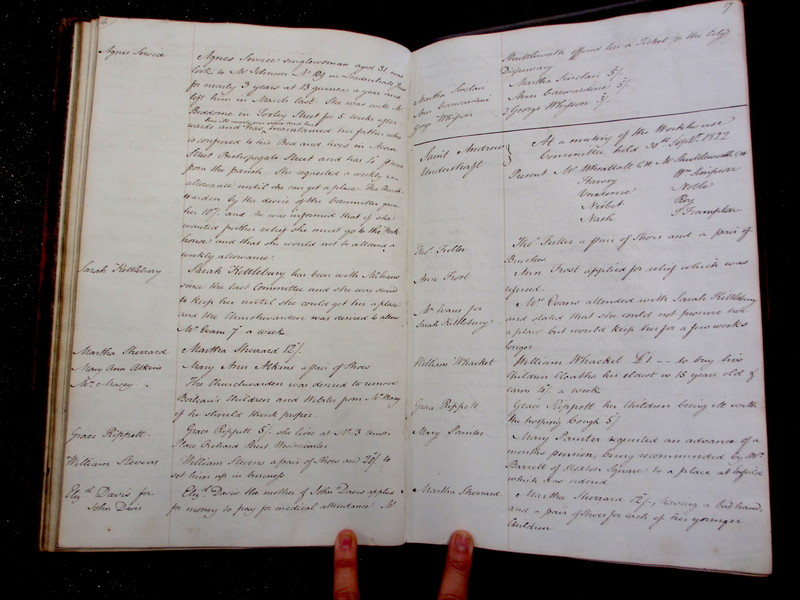 6
Agnes Service
Agnes Service singlewoman aged 31 was
Cook to Mr Johnson No 109 in Leadenhall
for nearly 3 years at 13 guineas a year and
left him in March last. She was with Mr
Beddome in Tooley Street for 5 weeks after
wards and has maintained her father who
is confined to his Bed and lives in
Street Bishopsgate Street and has
from the parish. She requested a weekly
allowance until she can get a place. The Church
Warden by the desire of the Committee gave
her 10/. and she was informed that if she
wanted further relief she must go to the Work
house and that she would not be allowed a
weekly allowance.
Sarah Kettlebury
Sarah Kettlebury has been with Mr Evans
since the last Committee and she was desired
to keep her until she could get her a place
and the Churchwarden was desired to allow
Mr Evans 7/ a week
Martha Sherrard
Martha Sherrard 12/.
Mary Ann Atkins
Mary Ann Atkins a pair of Shoes
Mrs Macey
The Churchwarden was desired to remove
Children and Webster from Mrs Macey
if he should think proper.
Grace Rippett.
Grace Rippett 5/. she lives at No 13
Place Orchard Street Westminster
William Stevens
William Stevens a pair of Shoes and 20/. to
set him up in business
Elizth Davis for
John Davis
Elizth Davis the mother of John Davis applied
for money to pay for medical attendance. Mr
7
Shuttleworth offered her a Ticket to the City
Dispensary
Martha Sinclair
Martha Sinclair 5/.
Ann Carwardine
Ann Carwardine 5/.
George Whipson
George Whipson 5/.
Saint Andrew
Undershaft
At a meeting of the Workhouse
Committee held 30th Septr. 1822
Present Mr Whrattall CW Mr Shuttleworth CW
Harvey Wm Simpson
Vennome Noble
Nisbet Roy
Nash S Frampton
Thos. Fuller
Thos. Fuller a pair of Shoes and a pair of
Breeches
Ann Frost
Ann Frost applied for relief which was
refused.
Mrs Evans for
Sarah Kettlebury
Mrs Evans attended with Sarah Kettlebury
and stated that she could not procure her
a place but would keep her for a few weeks
longer
William Whacket
William Whacket £1 -- to buy his
Children Cloaths, his eldest is 15 years old &
earns 4/. a week
Grace Rippett
Grace Rippett her Children being ill with
the hooping Cough 5/.
Mary Painter
Mary Painter requested an advance of a
months pension, being recommended by Mr
Barrett of Hoxton Square to a place at Enfield
which was ordered
Martha Sherrard
Martha Sherrard 12/., having a bad hand,
and a pair of Shoes for each of her younger
Children